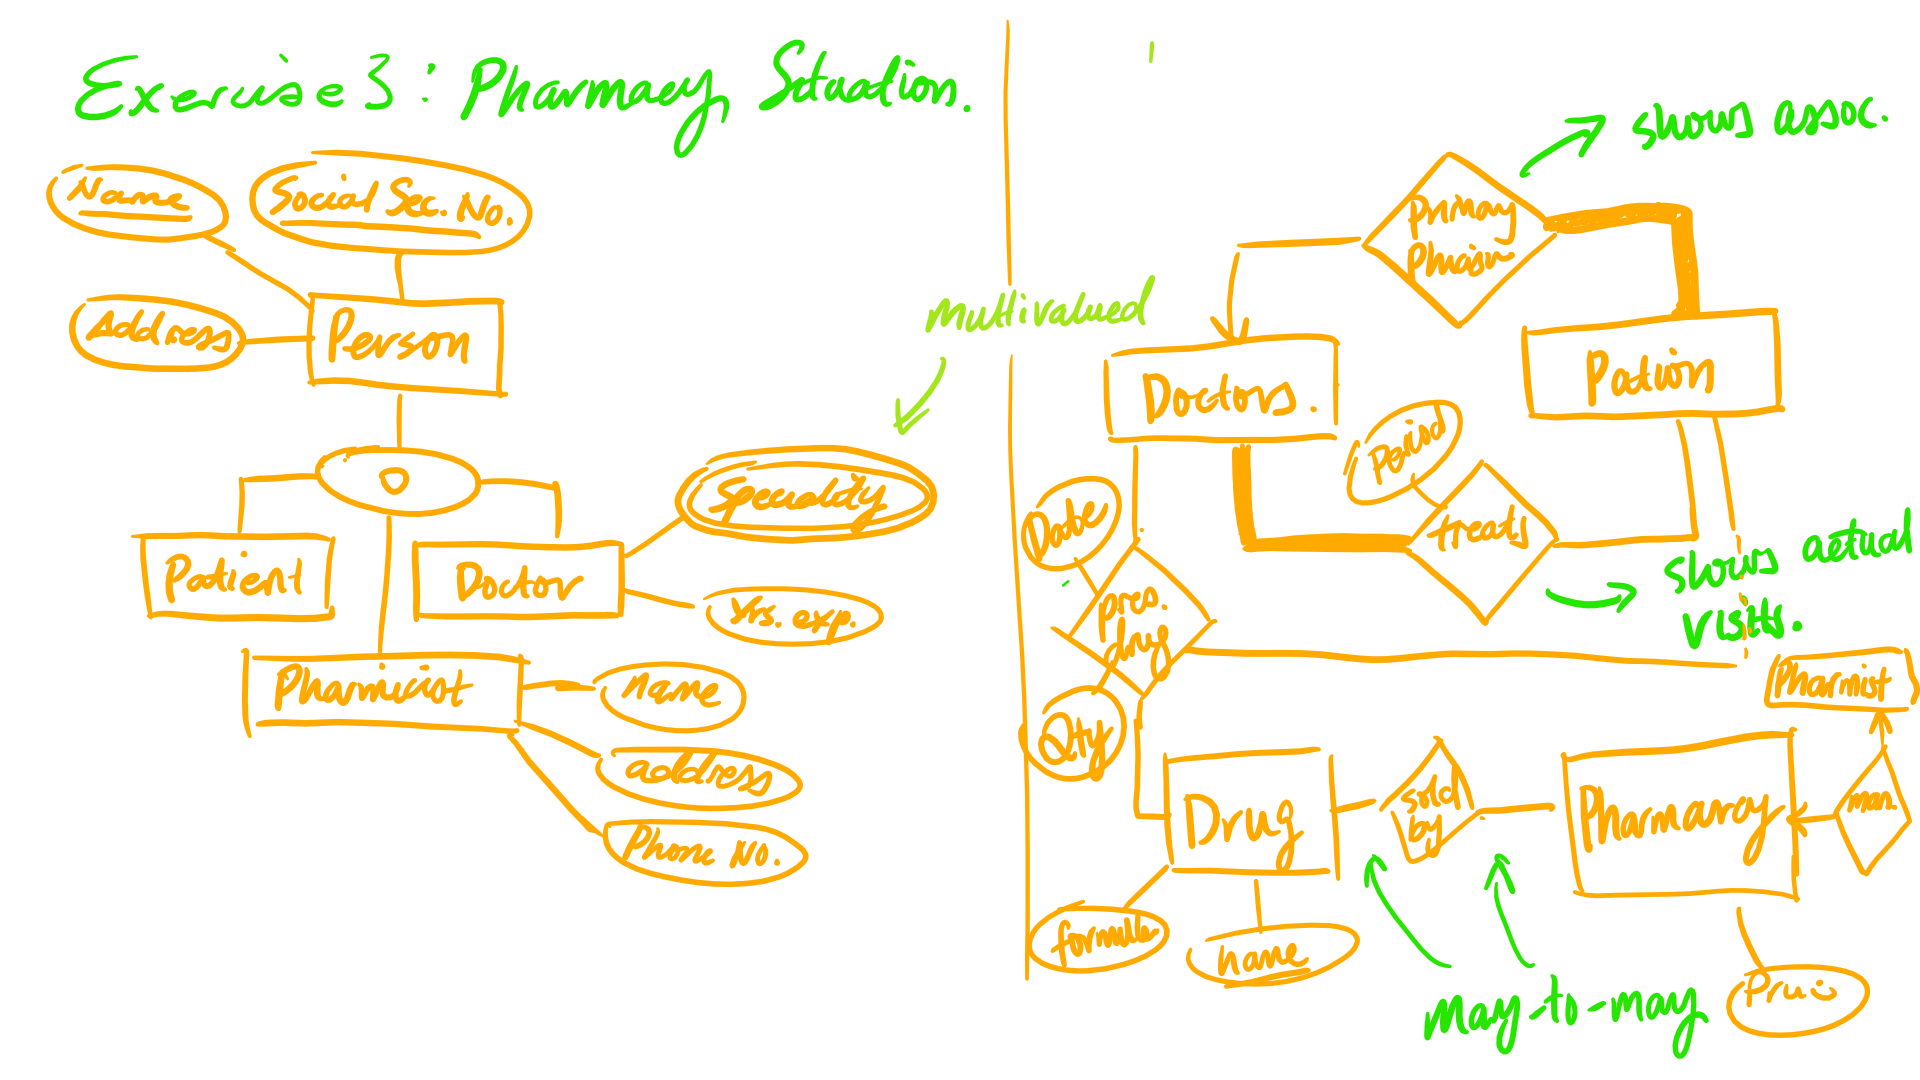 Exercise 3: Pharmacy Situation.
Name
Social Sec. No.
Address
Person
O
Patient
Doctor
Speciality
multivalued
Yrs. exp.
Pharmicist
name
address
Phone No.
shows assoc.
primay
Doctors.
Period
treats
shows actual
visits.
Date
pres.
drug
Qty
Drug
sold
by
Pharmarcy
man.
Pharmist
name
may-to-may